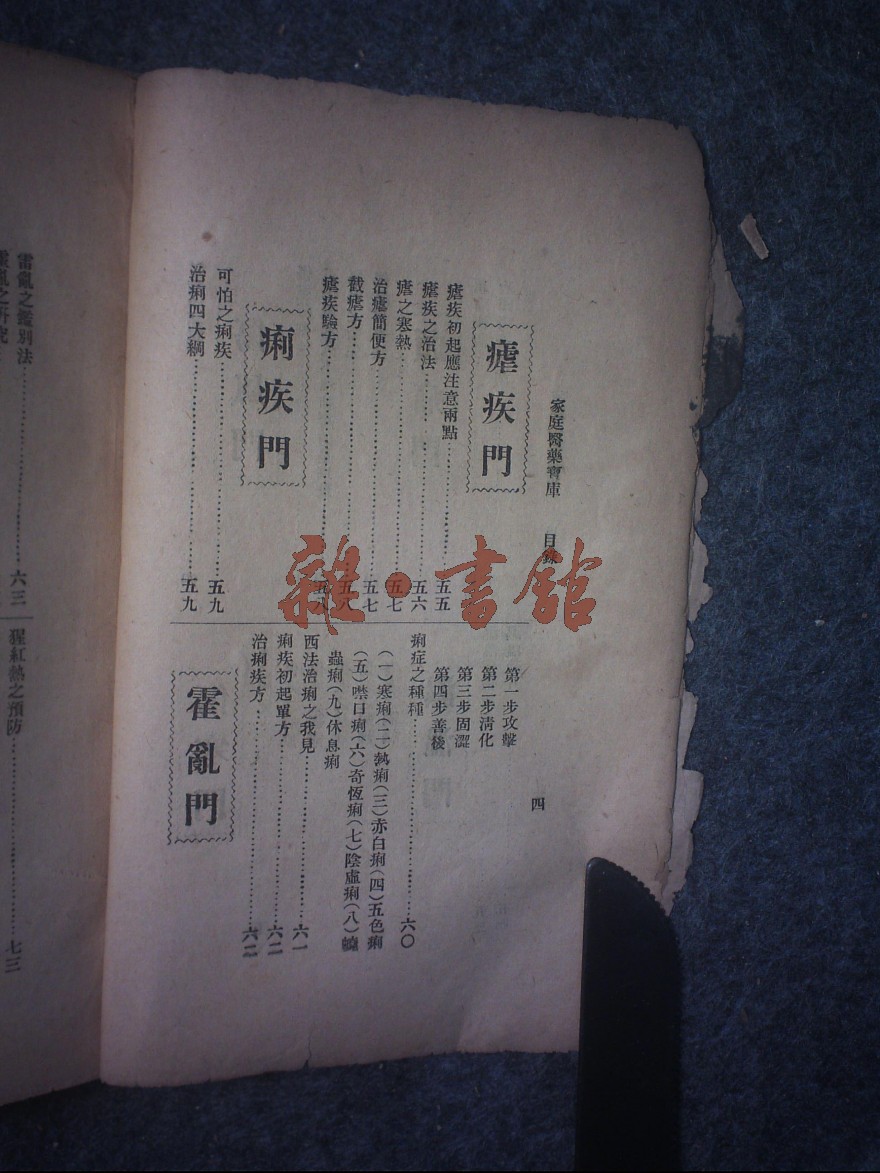 家庭醫藥寶庫 目錄 四
瘧疾門
瘧疾初起應注意兩點……五五
瘧疾之治法……五六
瘧之寒熱……五七
治瘧簡便方……五七
截瘧方……五八
瘧疾驗方……五八
痢疾門
可怕之痢疾……五九
治痢四大綱……五九
第一步攻擊
第二步清化
第三步固澀
第四步善後
痢症之種種……六〇
(一)寒痢(二)熱痢(三)赤白痢(四)五色痢
(五)噤口痢(六)奇恆痢(七)陰虛痢(八)
蟲痢(九)休息痢
西法治痢之我見……六一
痢疾初起單方……六二
治痢疾方……六二
霍亂門
霍亂之鑑別法……六三
霍亂之研究
猩紅熱之預防……七三
雜·書館